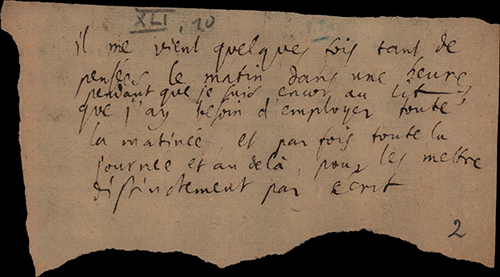 XLI, 10
il me vient quelques fois tant de
pensées le matin dans une heure,
pendant que je suis encor au lit,
que j'ay besoin d'employer toute
la matinée, et par fois toute la
journée et au delà, pour les mettre
distinctement par écrit
2